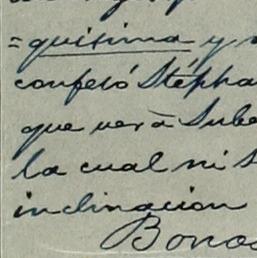 =quisima y
confesó Stépha
que ver à Sube
la cual ni S
inclinacion
Bonoc